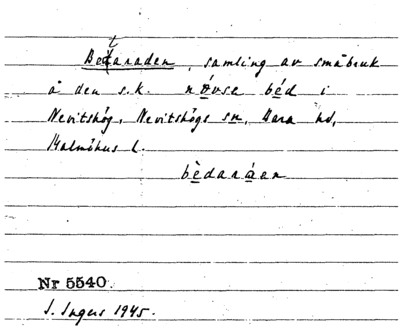 Betaraden, samling av småbruk
å den s.k. nǿvse béd i
Nevitshög, Nevitshögs sn, Bara hd,
Malmöhus l.
bèdaráen
Nr 5540.
I. Ingers 1945.